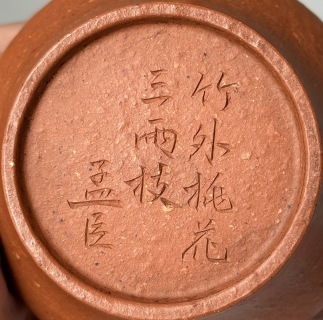 竹外桃花
三两枝
孟臣